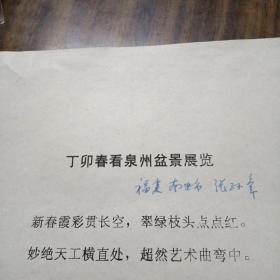 丁卯春看泉州盆景展览
福建
新春霞彩贯长空，翠绿枝头点点红。
妙绝天工横直处，超然艺术曲弯中。